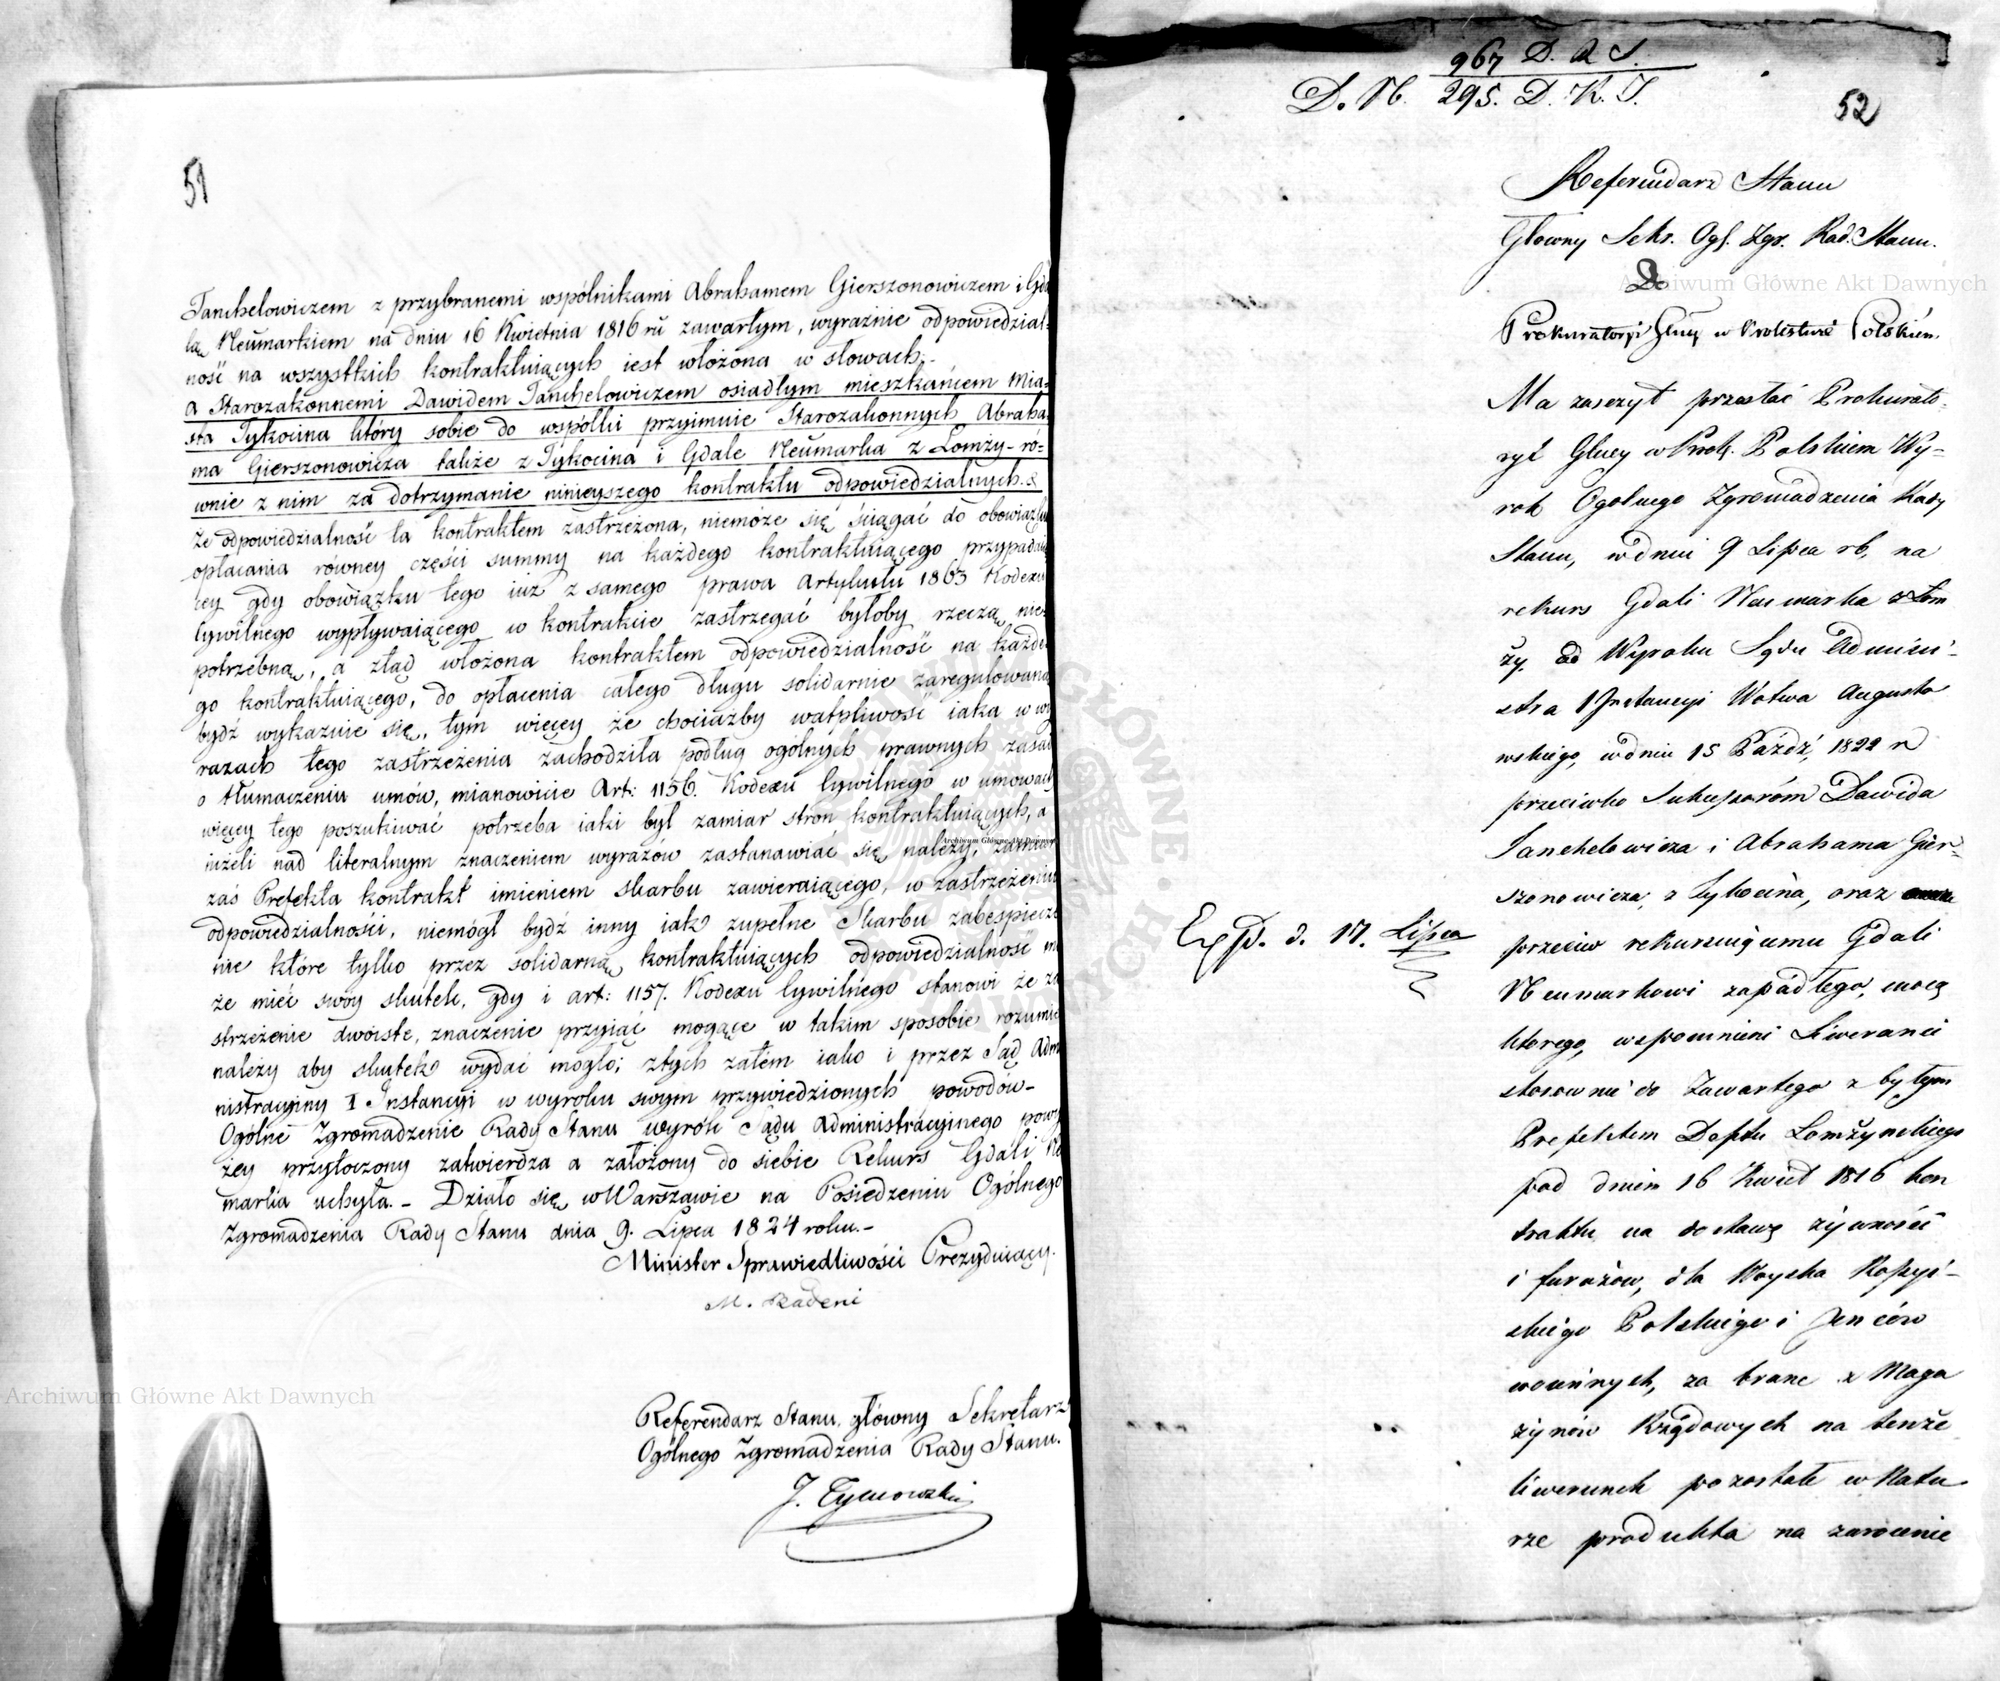 51
Tanchelowiczem z przybranemi wspólnikami Abrahamem Gierszonowiczem i Gda
lą Neumarkiem na dniu 16 Kwietnia 1816 rũ zawartym, wyraźnie odpowiedzial-
ność na wszystkich kontraktuiących iest włożona w słowach:-
a Starozakonnemi Dawidem Tanchelowiczem osiadłym mieszkańcem mia-
sta Tykocina który sobie do wspólki przyimuie Starozakonnych Abraha-
ma Gierszonowicza także z Tykocina i Gdale Neumarka z Łomży - ró-
wnie z nim za dotrzymanie ninieyszego kontraktu odpowiedzialnych. &
że odpowiedzialność ta kontraktem zastrzeżona, niemoże się ściągać do obowiązku
opłacania równey części summy na każdego kontraktuiącego przypadaią
cey gdy obowiązku tego iuż z samego prawa Artykułu 1863 Kodexu
Cywilnego wypływaiącego w kontrakcie zastrzegać byłoby rzeczą nie-
potrzebną, a ztąd włożona kontraktem odpowiedzialność na każde
go kontraktuiącego, do opłacenia całego długu solidarnie zaregulowaną
bydź wykazuie się, tym więcey że chociażby wątpliwość iaka w wy
razach tego zastrzeżenia zachodziła podług ogólnych prawnych zasad
o tłumaczeniu umów, mianowicie Art: 1156. Kodexu Cywilnego w umowach
więcey tego poszukiwać potrzeba iaki był zamiar stron kontraktuiących, a
niżeli nad literalnym znaczeniem wyrazów zastanawiać się należy, zamiar
zaś Prefekta kontrakt imieniem skarbu zawieraiącego, w zastrzeżeniu
odpowiedzialności, niemógł bydź inny iak zupełne Skarbu zabespiecze
nie które tylko przez solidarną kontraktuiących odpowiedzialność mo
że mieć swóy skutek, gdy i art: 1157. Kodexu Cywilnego stanowi że za
strzeżenie dwoiste, znaczenie przyiąć mogące w takim sposobie rozumieć
należy aby skutek wydać mogło; ztych zatém iako i przez Sąd Admi
nistracyiny I Instancyi w wyroku swym przywiedzionych powodów-
Ogólne Zgromadzenie Rady Stanu wyrok Sądu Administracyinego powy
żey przytoczony zatwierdza a założony do siebie Rekurs Gdali Neu
marka uchyla. - Działo się w Warszawie na Posiedzeniu Ogólnego
Zgromadzenia Rady Stanu dnia 9. Lipca 1824 roku.-
Minister Sprawiedliwości Prezyduiący.
M. Badeni
Referendarz Stanu, główny Sekretarz
Ogólnego Zgromadzenia Rady Stanu.
J. Tymowski
967 D. A S.
D. N. 295. D. K. J.
52
Referendarz Stanu
Głowny Sekr. Ogl. Zgr. Rad. Stanu.
Do
Prokuratoryi Glney w Krolestwie Polskiem.
Ma zaszczyt przesłać Prokurato-
ryi Glney w Krol. Polskiem Wy-
rok Ogolnego Zgromadzenia Rady
Stanu, w dniu 9 Lipca rb, na
rekurs Gdali Neumarka z Łom
ży, od Wyroku Sądu Admini-
stra I Instancyi Wdztwa Augusto
wskiego, w dniu 15 Paźdź, 1822 r
przeciwko Sukcessorom Dawida
Tanchelowicza i Abrahama Gier-
szonowicza, z Tykocina, oraz
przeciw rekuruiącemu Gdali
Neumarkowi zapadłego, mocą
ktorego, wspomnieni Liweranci
stosownie do Zawartego z byłym
Prefektem Deptu Łomżynskiego
pod dniem 16 Kwiet 1816 kon
traktu na dostawę żywności
i furażow, dla Woyska Rossyi-
skiego Polskiego i Jeńców
woiennych, za brane z Maga
zynów Rządowych na tenże
liwerunek pozostałe w Natu
rze produkta na zwrocenie
Exp. d. 17. Lipca
Archiwum Główne Akt Dawnych
Archiwum Główne Akt Dawnych
Archiwum Główne Akt Dawnych